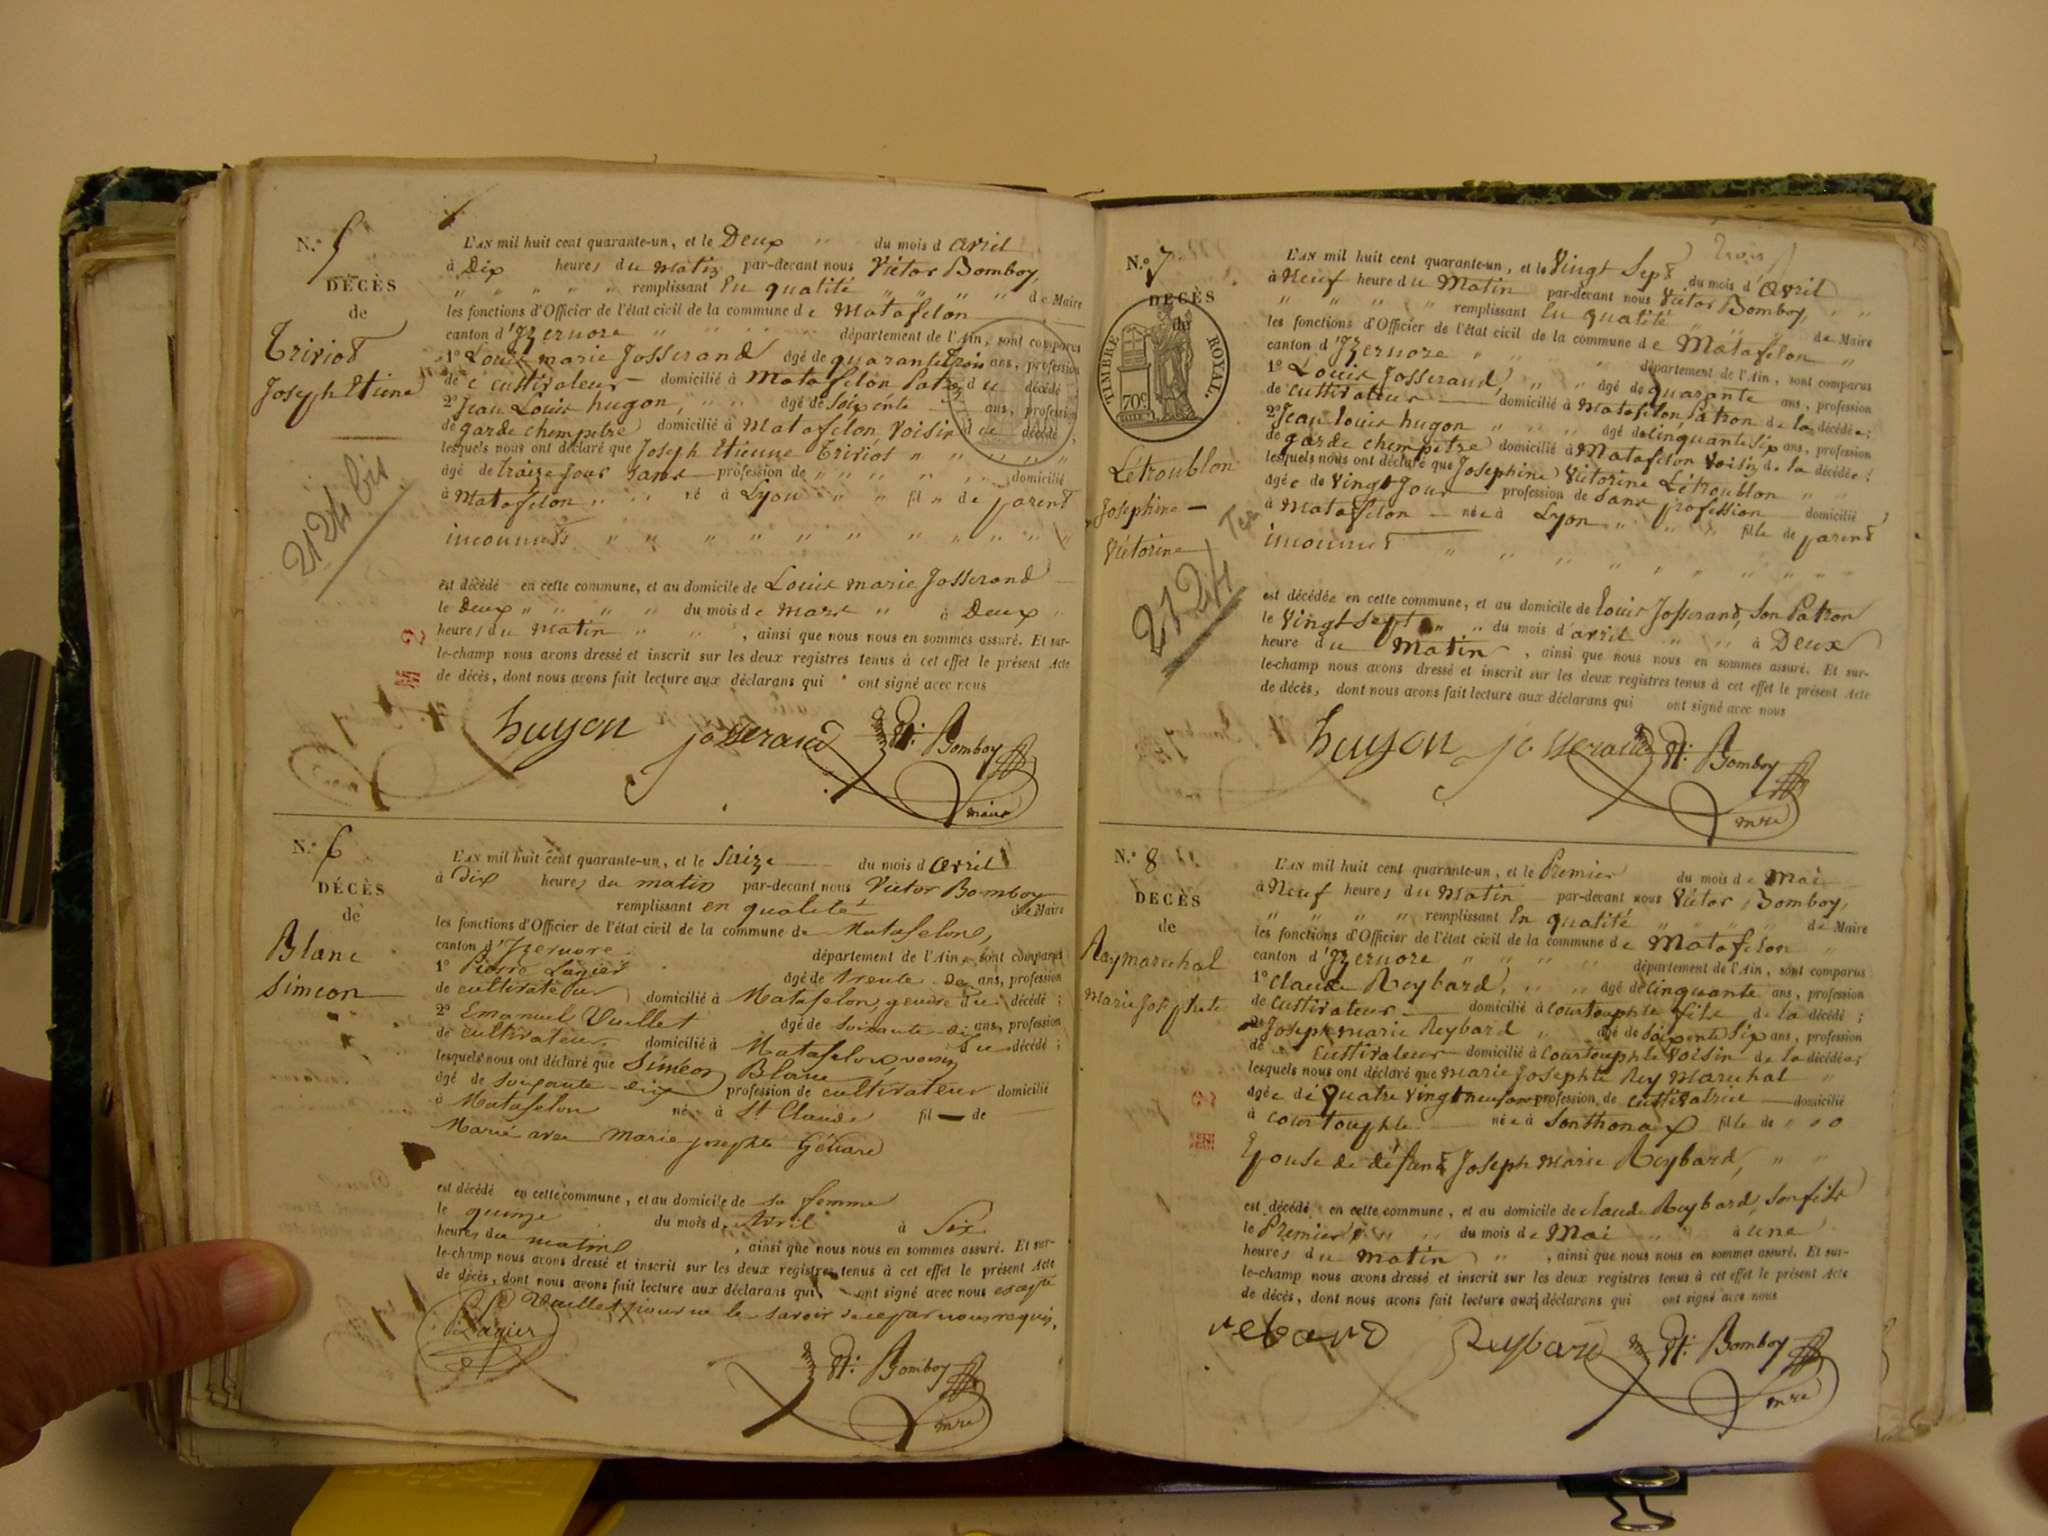 N.o 5
DÉCÈS
de
Triviot
Joseph Etiene
2124 bis
L'AN mil huit cent quarante-un, et le Deux " du mois d avril
à Dix heures du Matin par-devant nous Victor Bomboy,
" " " " " remplissant En qualité " " " " de Maire
les fonctions d'Officier de l'état civil de la commune de Matafelon
canton d'Izernore " " " département de l'Ain, sont comparus
1o Louis marie Josserand âgé de quarante trois ans, profession
de cultivateur domicilié à Matafelon Patron du décédé
2o Jean Louis hugon, " " âgé de soixente ans, profession
de garde chempetre domicilié à Matafelon Voisin du décédé,
lesquels nous ont déclaré que Joseph Etienne Triviot " " " " "
âgé de traize jour sans profession de " " " " " " domicilié
à Matafelon " " " né à Lyon " " fil " de parent
inconnuts " " " " " " " " " " "
est décédé en cette commune, et au domicile de Louis marie Josserand
le Deux " " " " du mois de mars " à Deux "
heures du Matin " " " , ainsi que nous nous en sommes assuré. Et sur-
le-champ nous avons dressé et inscrit sur les deux registres tenus à cet effet le présent Acte
de décès, dont nous avons fait lecture aux déclarans qui ont signé avec nous
huyon josserand Vt: Bomboy
maire
N.o 6
DÉCÈS
de
Blanc
Siméon
L'AN mil huit cent quarante-un, et le Saize du mois d avril
à Dix heures du matin par-devant nous Victor Bomboy
remplissant en qualité de Maire
les fonctions d'Officier de l'état civil de la commune de Matafelon,
canton d'Izernore département de l'Ain, sont comparus
1o Pierre Lagier âgé de trente ans, profession
de cultivateur domicilié à Matafelon, gendre du décédé ;
2o Emanuel Vuillet âgé de soixante-dix ans, profession
de cultivateur domicilié à Matafelon, voisin du décédé ;
lesquels nous ont déclaré que Siméon Blanc
âgé de soixante-dix profession de cultivateur domicilié
à Matafelon né à St Claude fil de
Marié avec marie josephte
est décédé en cette commune, et au domicile de sa femme
le quinze du mois d'Avril à Six
heures du matin , ainsi que nous nous en sommes assuré. Et sur-
le-champ nous avons dressé et inscrit sur les deux registres tenus à cet effet le présent Acte
de décès, dont nous avons fait lecture aux déclarans qui ont signé avec nous excepté
Vuillet pour ne le savoir de ce par nous requis.
Lagier
Vt: Bomboy
mre
N.o 7
DÉCÈS
de
TIMBRE ROYAL
70c
Létroublon
Josephine
Victorine
2124 Ter
trois
L'AN mil huit cent quarante-un, et le Vingt Sept du mois d'avril
à Neuf heure du Matin par-devant nous Victor Bomboy, " "
" " " " remplissant En qualité " " " de Maire
les fonctions d'Officier de l'état civil de la commune de Matafelon "
canton d'Izernore " " " " département de l'Ain, sont comparus
1o Louis Josserand, " " " âgé de quarante ans, profession
de cultivateur domicilié à Matafelon Patron de la décédée ;
2o Jean louis hugon " " " âgé de cinquante six ans, profession
de garde chempetre domicilié à Matafelon Voisin de la décédée ;
lesquels nous ont déclaré que Josephine Victorine Létroublon " "
âgée de Vingt Jour profession de sans profession domicilié
à Matafelon née à Lyon " " " fille de parent
inconnut " " " " " " " " "
est décédée en cette commune, et au domicile de louis Josserand, son Patron
le Vingt sept " " du mois d'avril " " à Deux
heure du Matin , ainsi que nous nous en sommes assuré. Et sur-
le-champ nous avons dressé et inscrit sur les deux registres tenus à cet effet le présent Acte
de décès, dont nous avons fait lecture aux déclarans qui ont signé avec nous
huyon josserand Vt: Bomboy
mre
N.o 8
DÉCÈS
de
Reymarechal
Marie Josephete
L'AN mil huit cent quarante-un, et le Premier du mois de Mai
à Neuf heures du Matin par-devant nous Victor Bomboy,
" " " " remplissant En qualité " " de Maire
les fonctions d'Officier de l'état civil de la commune de Matafelon "
canton d'Izernore " " " " département de l'Ain, sont comparus
1o Claude Reybard, " " " âgé de cinquante ans, profession
de cultivateur domicilié à courtouphle fils de la décédé ;
2o Joseph marie Reybard " âgé de soixente six ans, profession
de cultivateur domicilié à courtouphle Voisin de la décédée ;
lesquels nous ont déclaré que marie Josephte Rey Marechal "
âgée de Quatre Vingt neuf ans profession de cultivatrice domicilié
à courtouphle née à Sonthonax fille de " " "
Epouse de défunt Joseph Marie Reybard, " "
est décédé en cette commune, et au domicile de claude Reybard, son fils
le Premier " " " du mois de Mai à une
heures du matin " " , ainsi que nous nous en sommes assuré. Et sur-
le-champ nous avons dressé et inscrit sur les deux registres tenus à cet effet le présent Acte
de décès, dont nous avons fait lecture aux déclarans qui ont signé avec nous
rebard Reybard Vt: Bomboy
mre